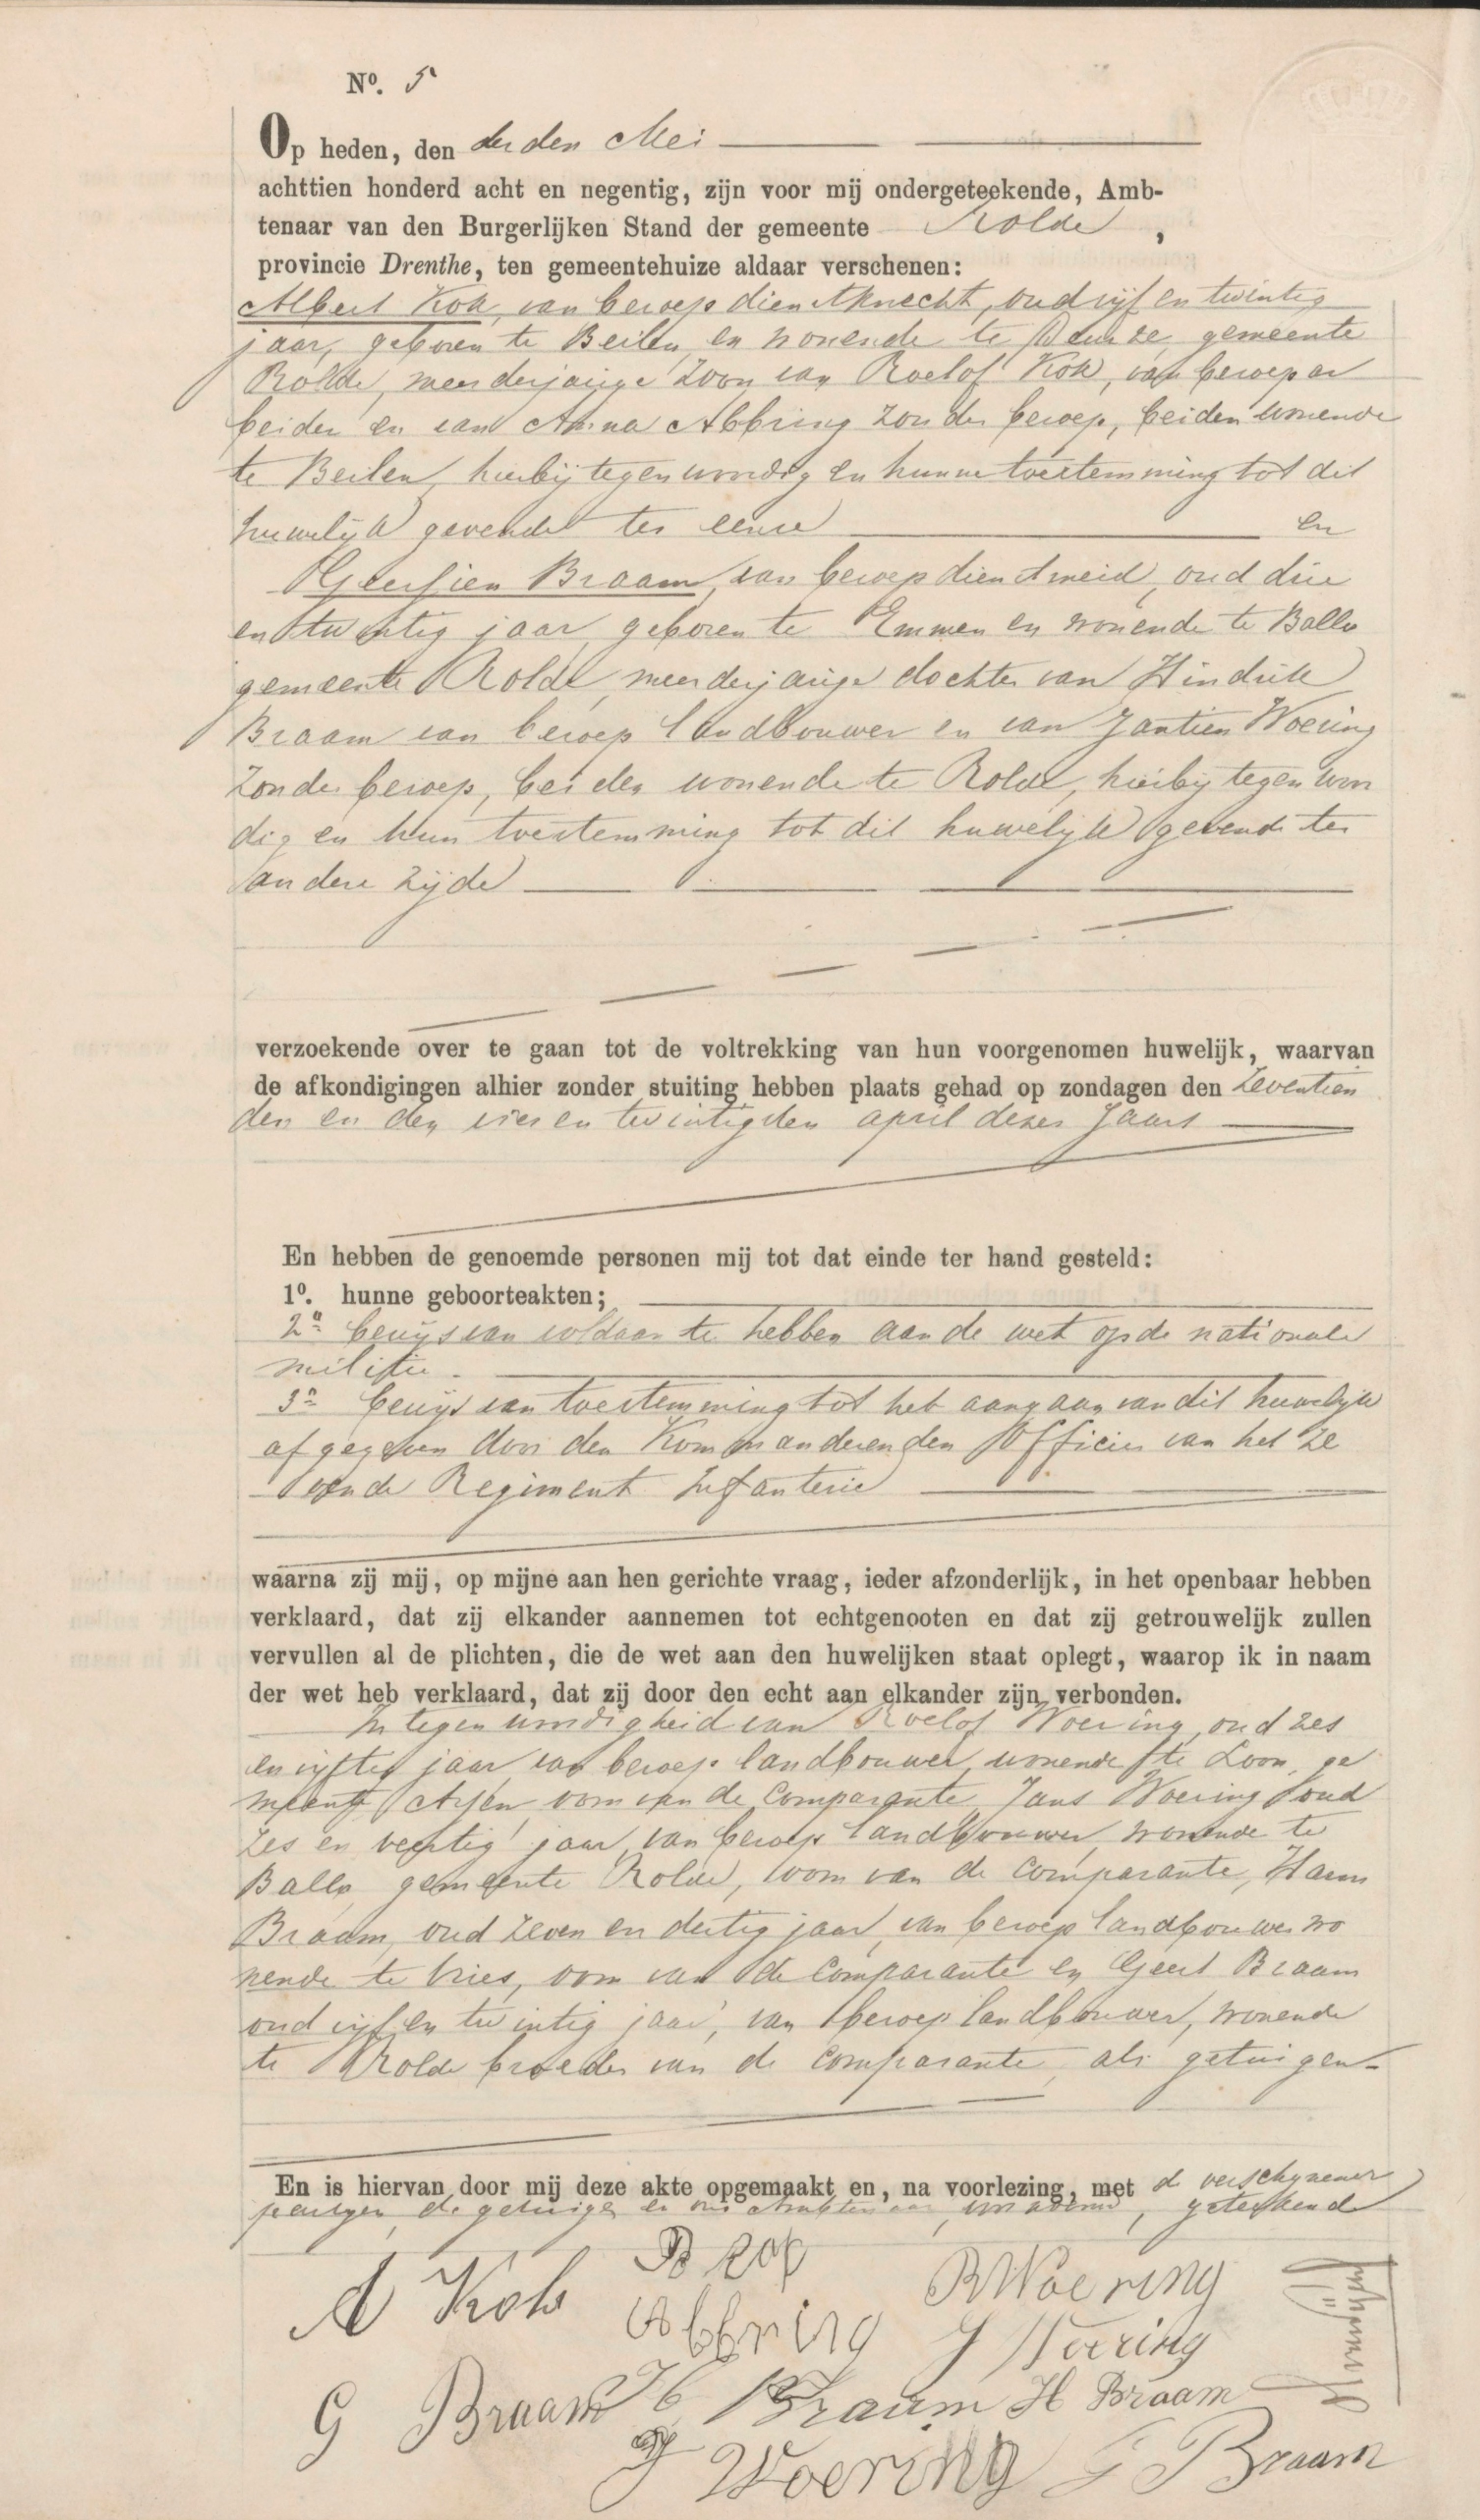 Nº. 5
Op heden, den derden Mei
achttien honderd acht en negentig, zijn voor mij ondergeteekende, Amb-
tenaar van den Burgerlijken Stand der gemeente Rolde,
provincie Drenthe, ten gemeentehuize aldaar verschenen:
Albert Kok, van beroep dienstknecht, oud vijf en twintig
jaar, geboren te Beilen en wonende te Deurze, gemeente
Rolde, meerderjarige zoon van Roelof Kok, van beroep ar
beider en van Anna Abbring zonder beroep, beiden wonende
te Beilen, hierbij tegenwoordig en hunne toestemming tot dit
huwelijk gevende ter eenre en
Geersien Braam, van beroep dienstmeid, oud drie
en twintig jaar, geboren te Emmen en wonende te Balloo
gemeente Rolde, meerderjarige dochter van Hindrik
Braam van beroep landbouwer en van Jantien Woering
zonder beroep, beiden wonende te Rolde, hierbij tegenwoor
dig en hun toestemming tot dit huwelijk gevende ter
andere zijde
verzoekende over te gaan tot de voltrekking van hun voorgenomen huwelijk, waarvan
de afkondigingen alhier zonder stuiting hebben plaats gehad op zondagen den zeventien
den en den vier en twintigsten april dezes jaars
En hebben de genoemde personen mij tot dat einde ter hand gesteld:
1º. hunne geboorteakten;
2º bewijs van voldaan te hebben aan de wet op de nationale
militie.
3º bewijs van toestemming tot het aangaan van dit huwelijk
afgegeven door den Kommanderenden Officier van het Ze
vende Regiment Infanterie
waarna zij mij, op mijne aan hen gerichte vraag, ieder afzonderlijk, in het openbaar hebben
verklaard, dat zij elkander aannemen tot echtgenooten en dat zij getrouwelijk zullen
vervullen al de plichten, die de wet aan den huwelijken staat oplegt, waarop ik in naam
der wet heb verklaard, dat zij door den echt aan elkander zijn verbonden.
In tegenwoordigheid van Roelof Woering, oud zes
en vijftig jaar, van beroep landbouwer, wonende te Loon, ge
meente Assen oom van de comparante, Jans Woering oud
zes en veertig jaar, van beroep landbouwer, wonende te
Balloo gemeente Rolde, oom van de comparante, Harm
Braam, oud zeven en dertig jaar, van beroep landbouwer wo
nende te Vries, oom van de comparante en Geert Braam
oud vijf en twintig jaar, van beroep landbouwer, wonende
te Rolde broeder van de comparante, als getuigen.
En is hiervan door mij deze akte opgemaakt en, na voorlezing, met de verschijnende
partijen, de getuigen en ons Ambtenaar, voornoemd, geteekend
A Kok R Kok RWoering
Abbring J Woering
G Braam H Braam H Braam
J Woering G Braam